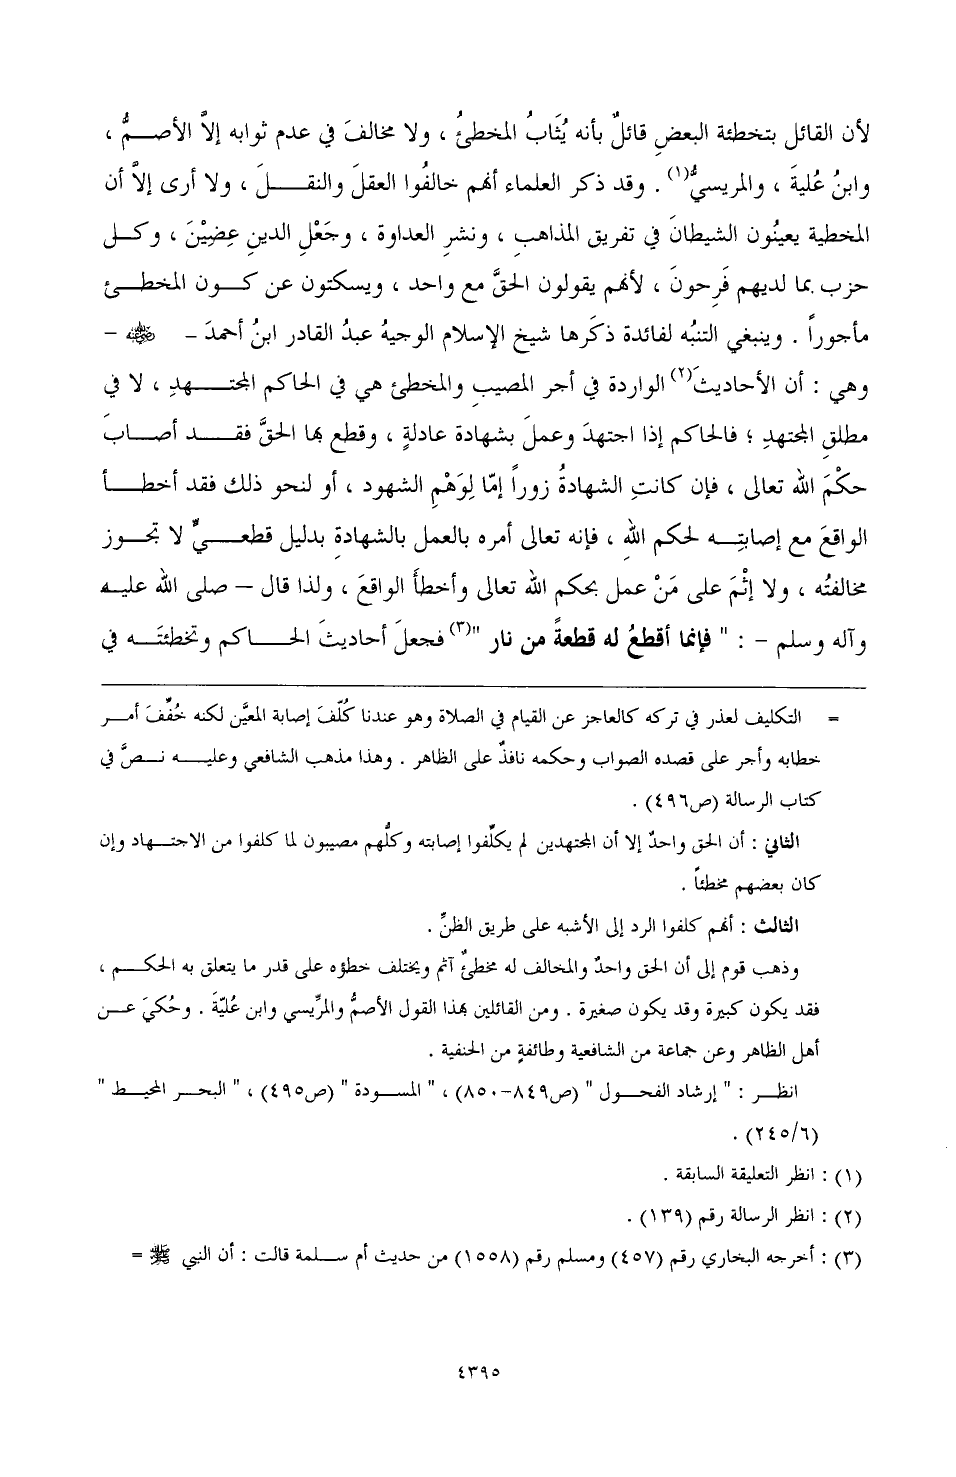 لأن القائل بتخطئة البعضِ قائلٌ بأنه يُثَابُ المخطئُ ، ولا مخالفَ في عدم ثوابه إلاَّ الأصـــمُّ ،
وابنُ عُليةَ ، والمريسيُّ(١) . وقد ذكر العلماء أنهم خالفُوا العقلَ والنقـــلَ ، ولا أرى إلاَّ أن
المخطية يعينُون الشيطانَ في تفريق المذاهبِ ، ونشرِ العداوة ، وجَعْلِ الدينِ عِضِيْنَ ، وكـل
حزب بما لديهم فَرِحونَ ، لأنهم يقولون الحقَّ مع واحد ، ويسكتون عن كـــون المخطـــئ
مأجوراً . وينبغي التنبُه لفائدة ذكَرها شيخ الإسلام الوجيهُ عبدُ القادر ابنُ أحمدَ ــ ﷺ –
وهي : أن الأحاديثَ(٢) الواردة في أجر المصيب والمخطئ هي في الحاكم المجتـــهدِ ، لا في
مطلقِ المجتهدِ ؛ فالحاكم إذا اجتهدَ وعملَ بشهادة عادلةٍ ، وقطع بها الحقَّ فقـــد أصـــابَ
حكْمَ الله تعالى ، فإن كانتِ الشهادةُ زوراً إمّا لِوَهْمِ الشهود ، أو لنحو ذلك فقد أخطـــأ
الواقعَ مع إصابتِـــه لحكم اللهِ ، فإنه تعالى أمره بالعمل بالشهادةِ بدليل قطعـــيٌّ لا تجـوز
مخالفتُه ، ولا إثْمَ على مَنْ عمل بحكم الله تعالى وأخطأَ الواقعَ ، ولذا قال – صلى الله عليـه
وآله وسلم – : " فإنما أقطعُ له قطعةً من نار "(٣) فجعلَ أحاديثَ الحـــاكم وتخطئتَـــه في
= التكليف لعذر في تركه كالعاجز عن القيام في الصلاة وهو عندنا كُلّفَ إصابة المعيَّن لكنه خُفِّفَ أمـــر
خطابه وأجر على قصده الصواب وحكمه نافذٌ على الظاهر . وهذا مذهب الشافعي وعليـــه نـــصَّ في
كتاب الرسالة (ص٤٩٦) .
الثاني : أن الحق واحدٌ إلا أن المجتهدين لم يكلّفوا إصابته وكلُّهم مصيبون لما كلفوا من الاجتـــهاد وإن
كان بعضهم مخطئاً .
الثالث : أنهم كلفوا الرد إلى الأشبه على طريق الظنِّ .
وذهب قوم إلى أن الحق واحدٌ والمخالف له مخطئٌ آثم ويختلف خطؤه على قدر ما يتعلق به الحكـــم ،
فقد يكون كبيرة وقد يكون صغيرة . ومن القائلين بهذا القول الأصمُّ والمرِّيسي وابن عُليّةَ . وحُكيَ عـــن
أهل الظاهر وعن جماعة من الشافعية وطائفةٍ من الحنفية .
انظـــر : " إرشاد الفحـــول " (ص٨٤٩–٨٥٠) ، " المســـودة " (ص٤٩٥) ، " البحـــر المحيـــط "
(٢٤٥/٦) .
(١) : انظر التعليقة السابقة .
(٢) : انظر الرسالة رقم (١٣٩) .
(٣) : أخرجه البخاري رقم (٤٥٧) ومسلم رقم (١٥٥٨) من حديث أم ســـلمة قالت : أن النبي ﷺ =
٤٣٩٥